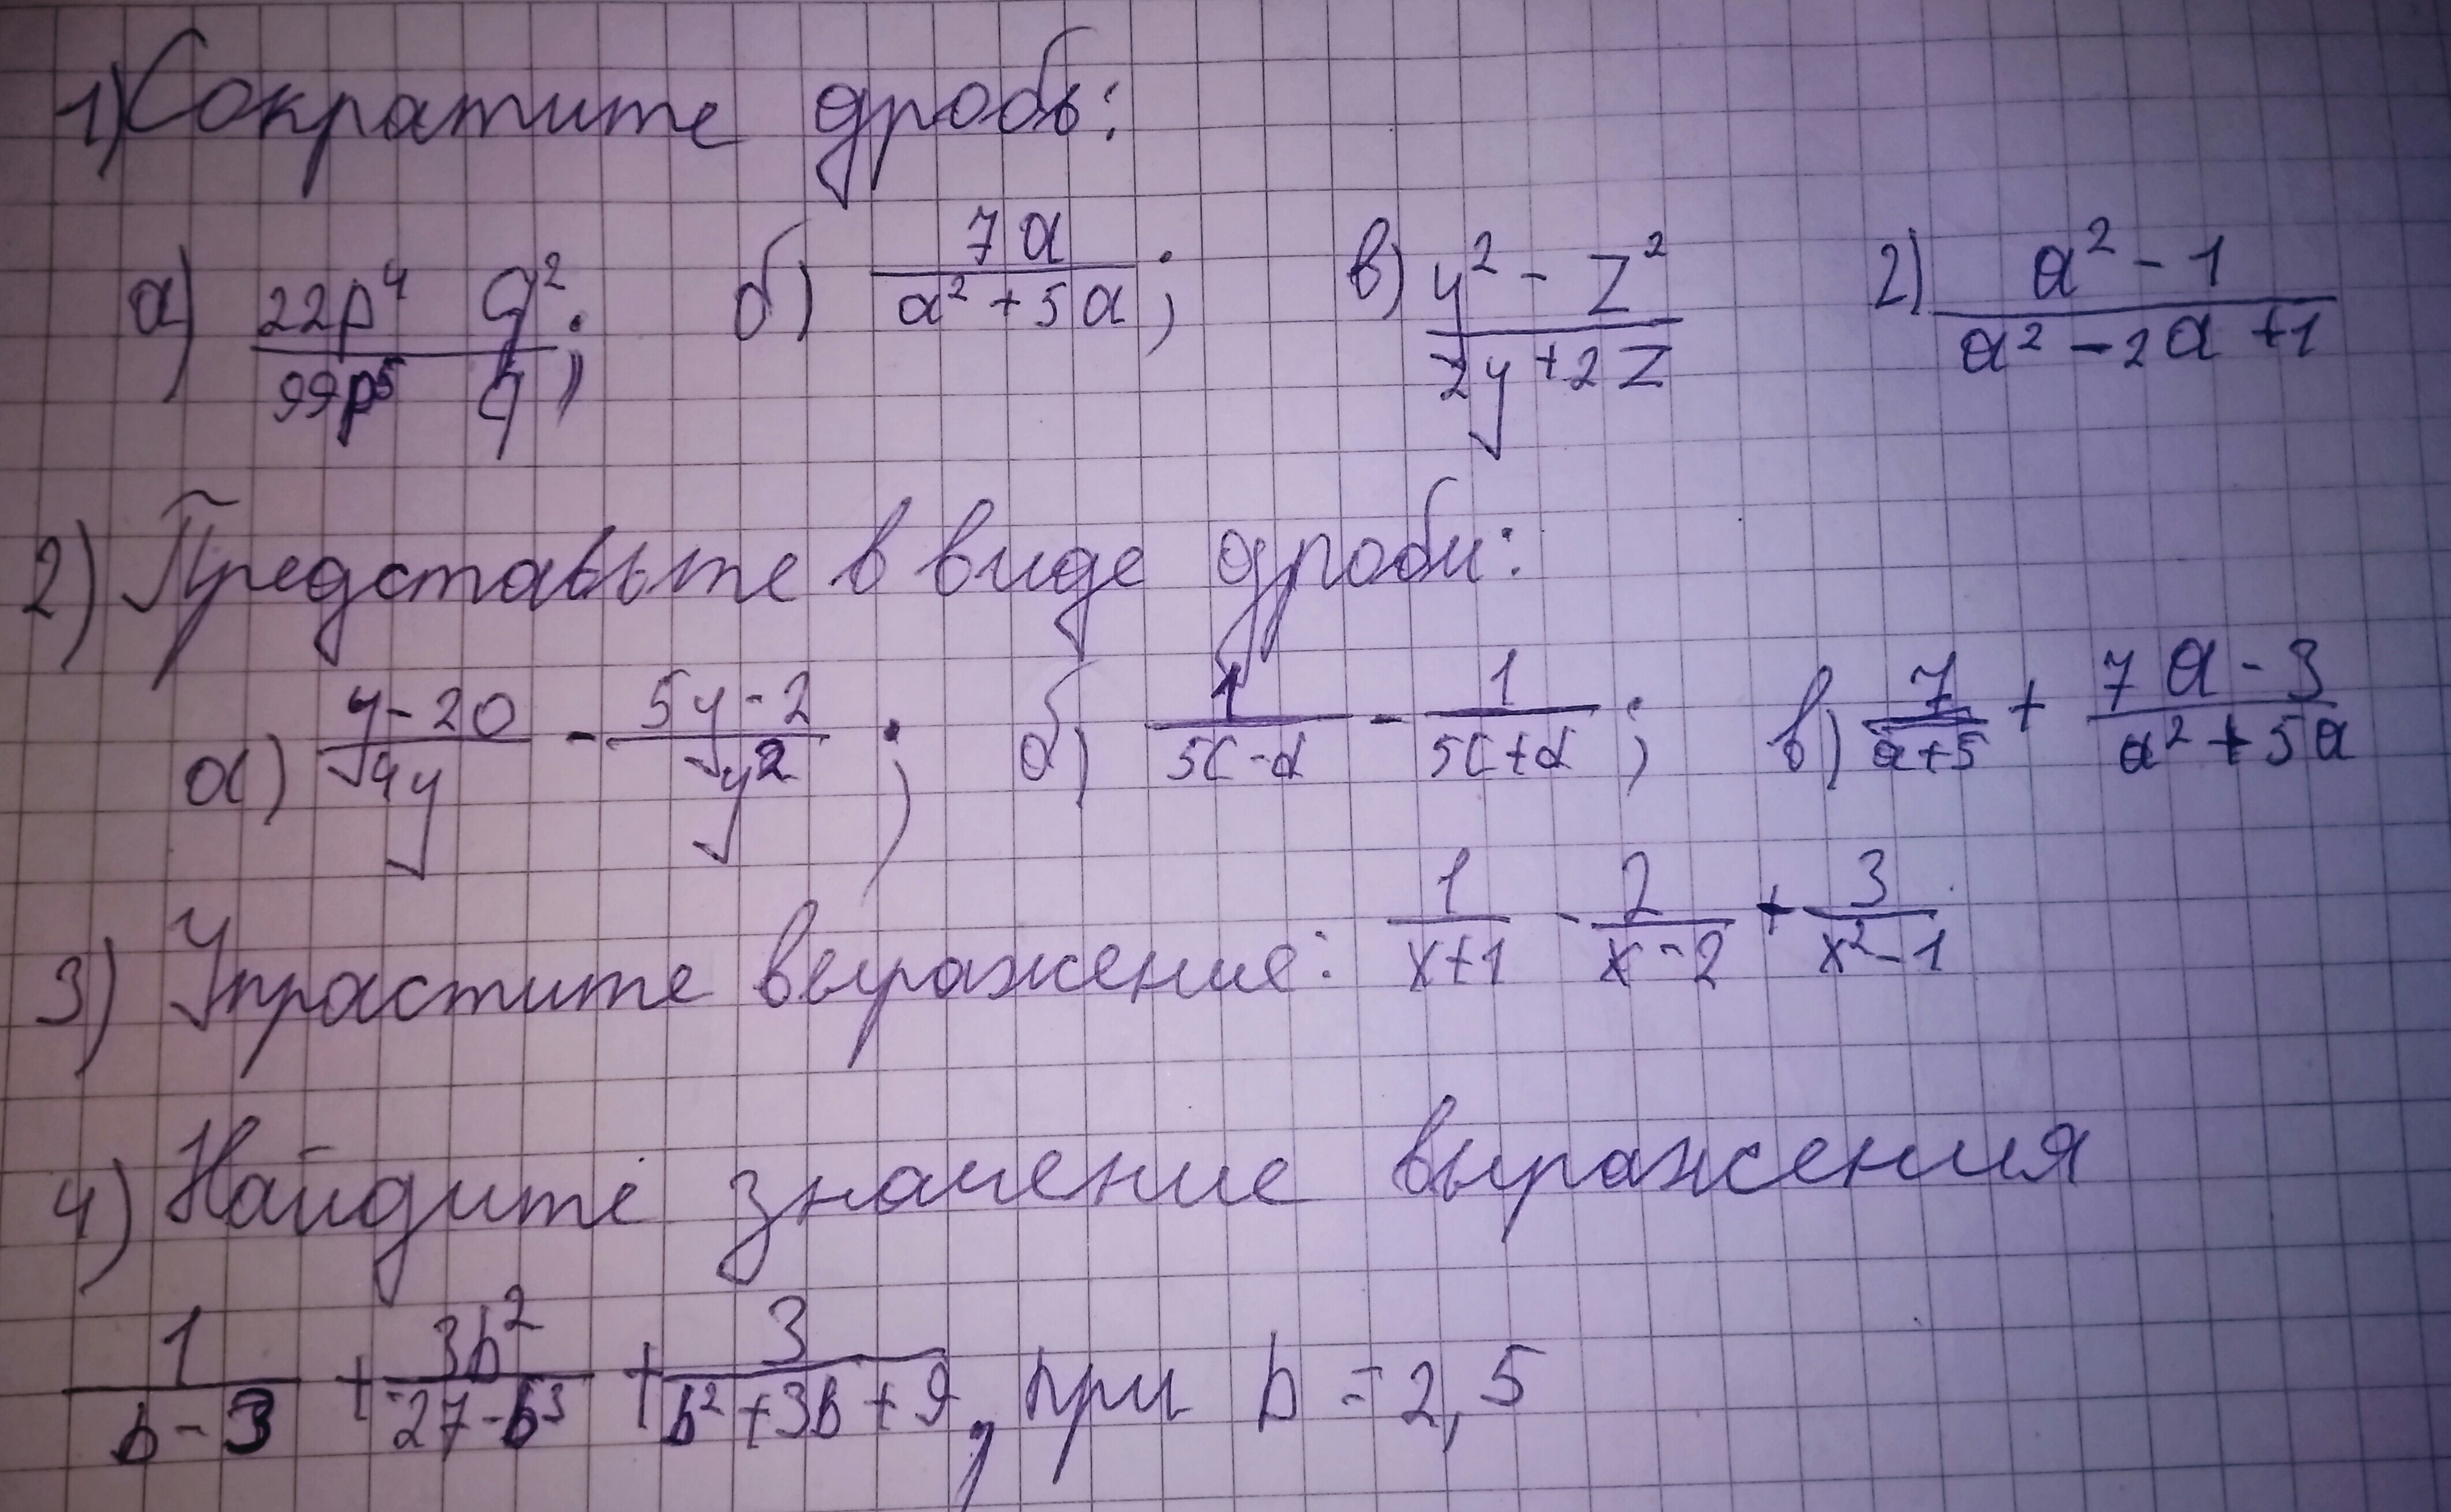 1) Сократите дробь:
а) 22p⁴ q² / 99p⁵ q; б) 7a / a² + 5a; в) y² - z² / 2y + 2z г) a² - 1 / a² - 2a + 1
2) Представьте в виде дроби:
а) y - 20 / 4y - 5y - 2 / y²; б) 1 / 5c - d - 1 / 5c + d; в) 7 / a + 5 + 7a - 3 / a² + 5a
3) Упрастите выражение: 1 / x + 1 - 2 / x - 2 + 3 / x² - 1
4) Найдите значение выражения
1 / b - 3 + 3b² / 27 - b³ + 3 / b² + 3b + 9, при b = 2,5